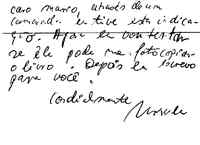 caro Marco, através de um
comando. eu tive esta indica-
ção. Aqui eu vou testar
se êle pode me fotocopiar
o livro. Depois eu escrevo
para você.
Cordialmente